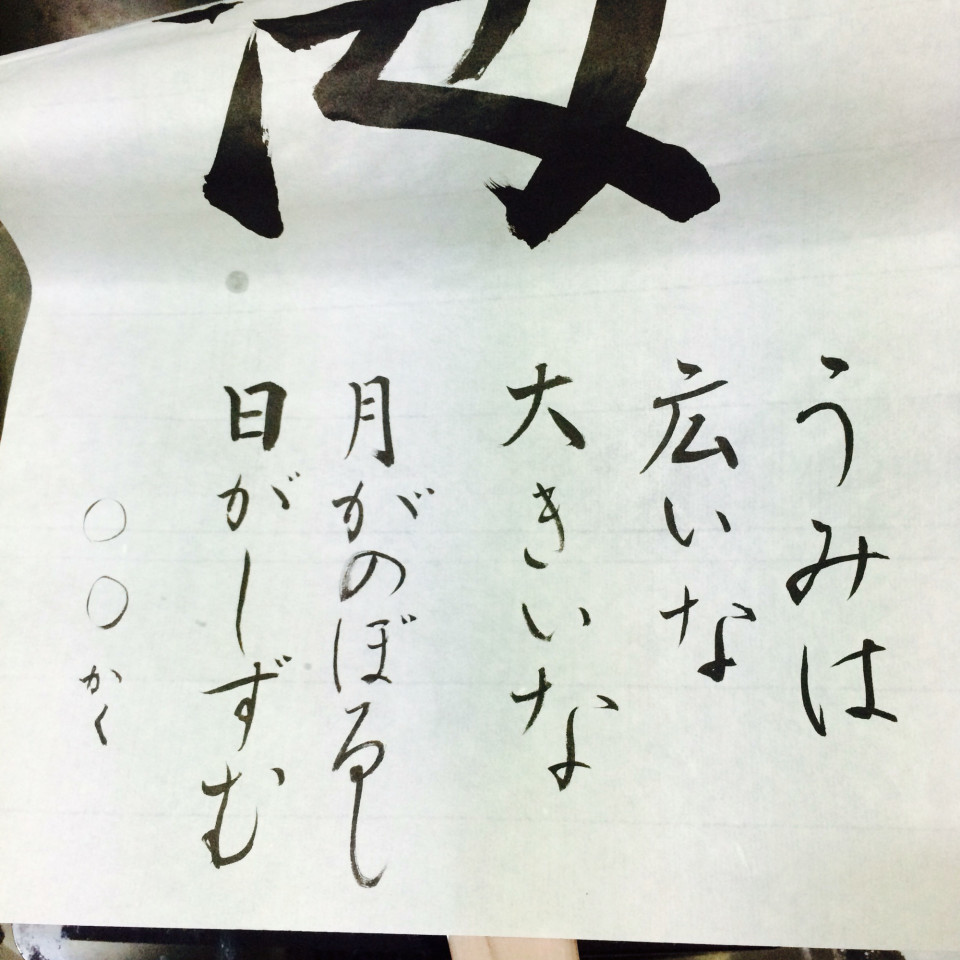 うみは
広いな
大きいな
月がのぼるし
日がしずむ
〇〇かく